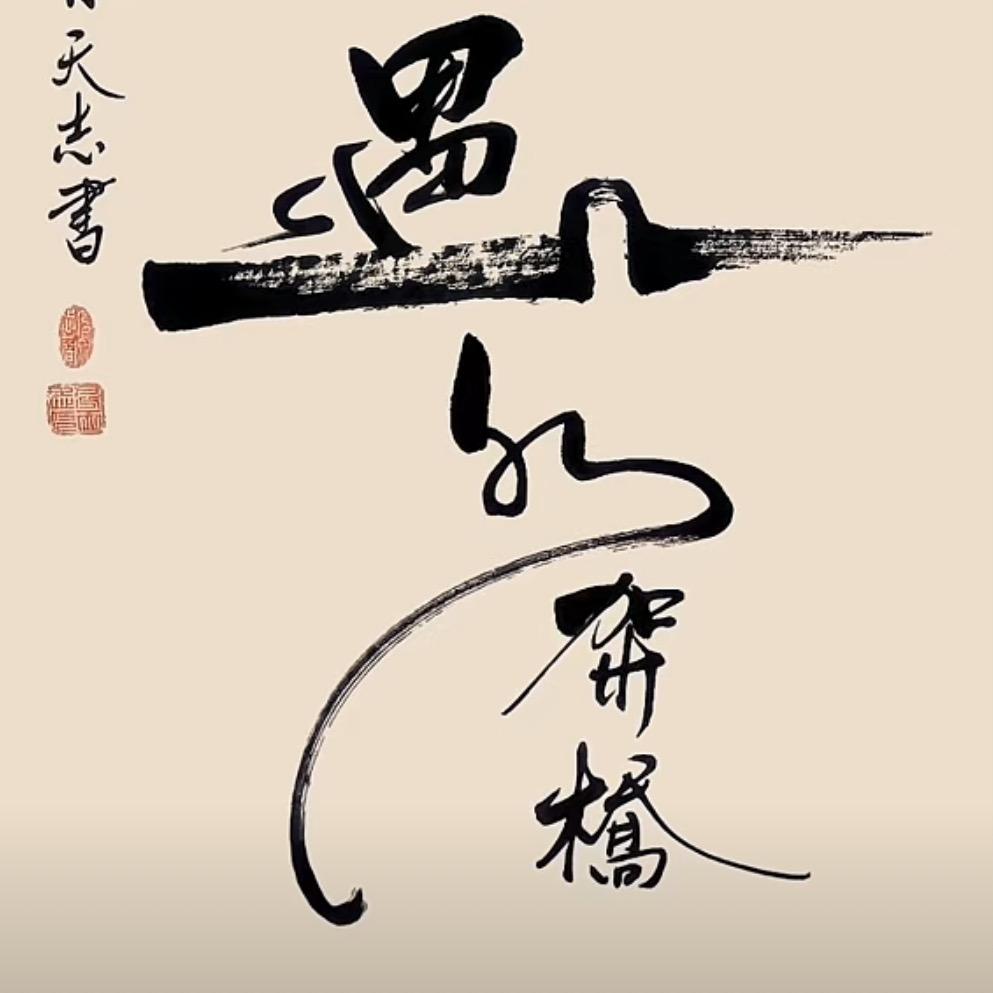 遇水架橋
天志書